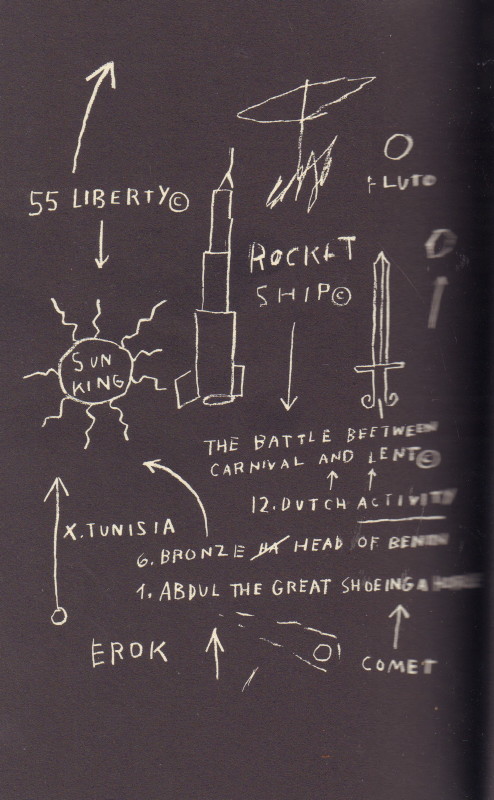 PLUTO
55 LIBERTY©
ROCKET
SHIP©
SUN
KING
THE BATTLE BEETWEEN
CARNIVAL AND LENT©
12. DUTCH ACTIVITY
X. TUNISIA
6. BRONZE HA HEAD OF BENIN
1. ABDUL THE GREAT SHOEING A HORSE
EROK
COMET